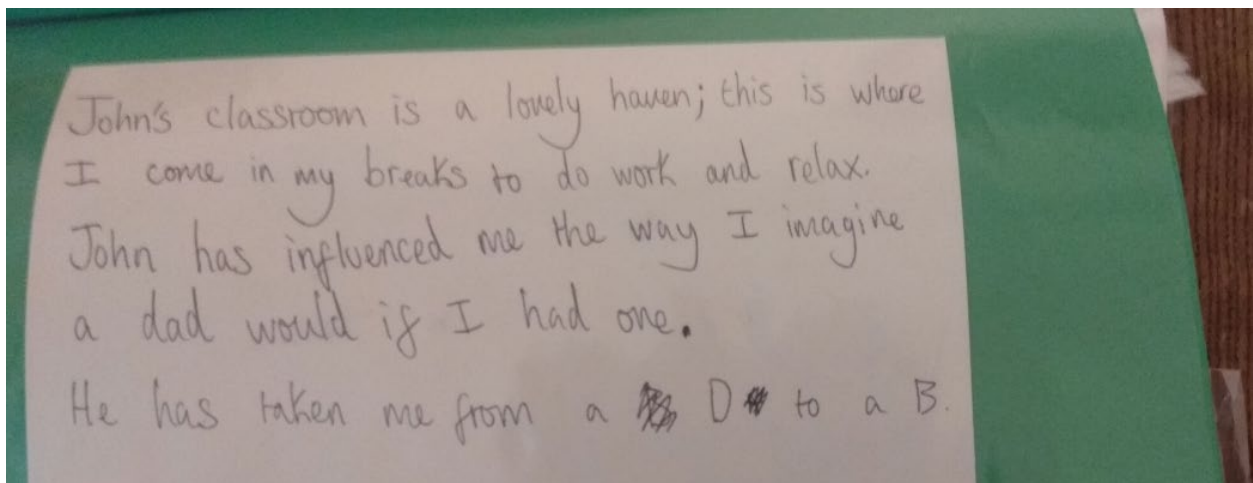 John's classroom is a lovely haven; this is where
I come in my breaks to do work and relax.
John has influenced me the way I imagine
a dad would if I had one.
He has taken me from a D to a B.